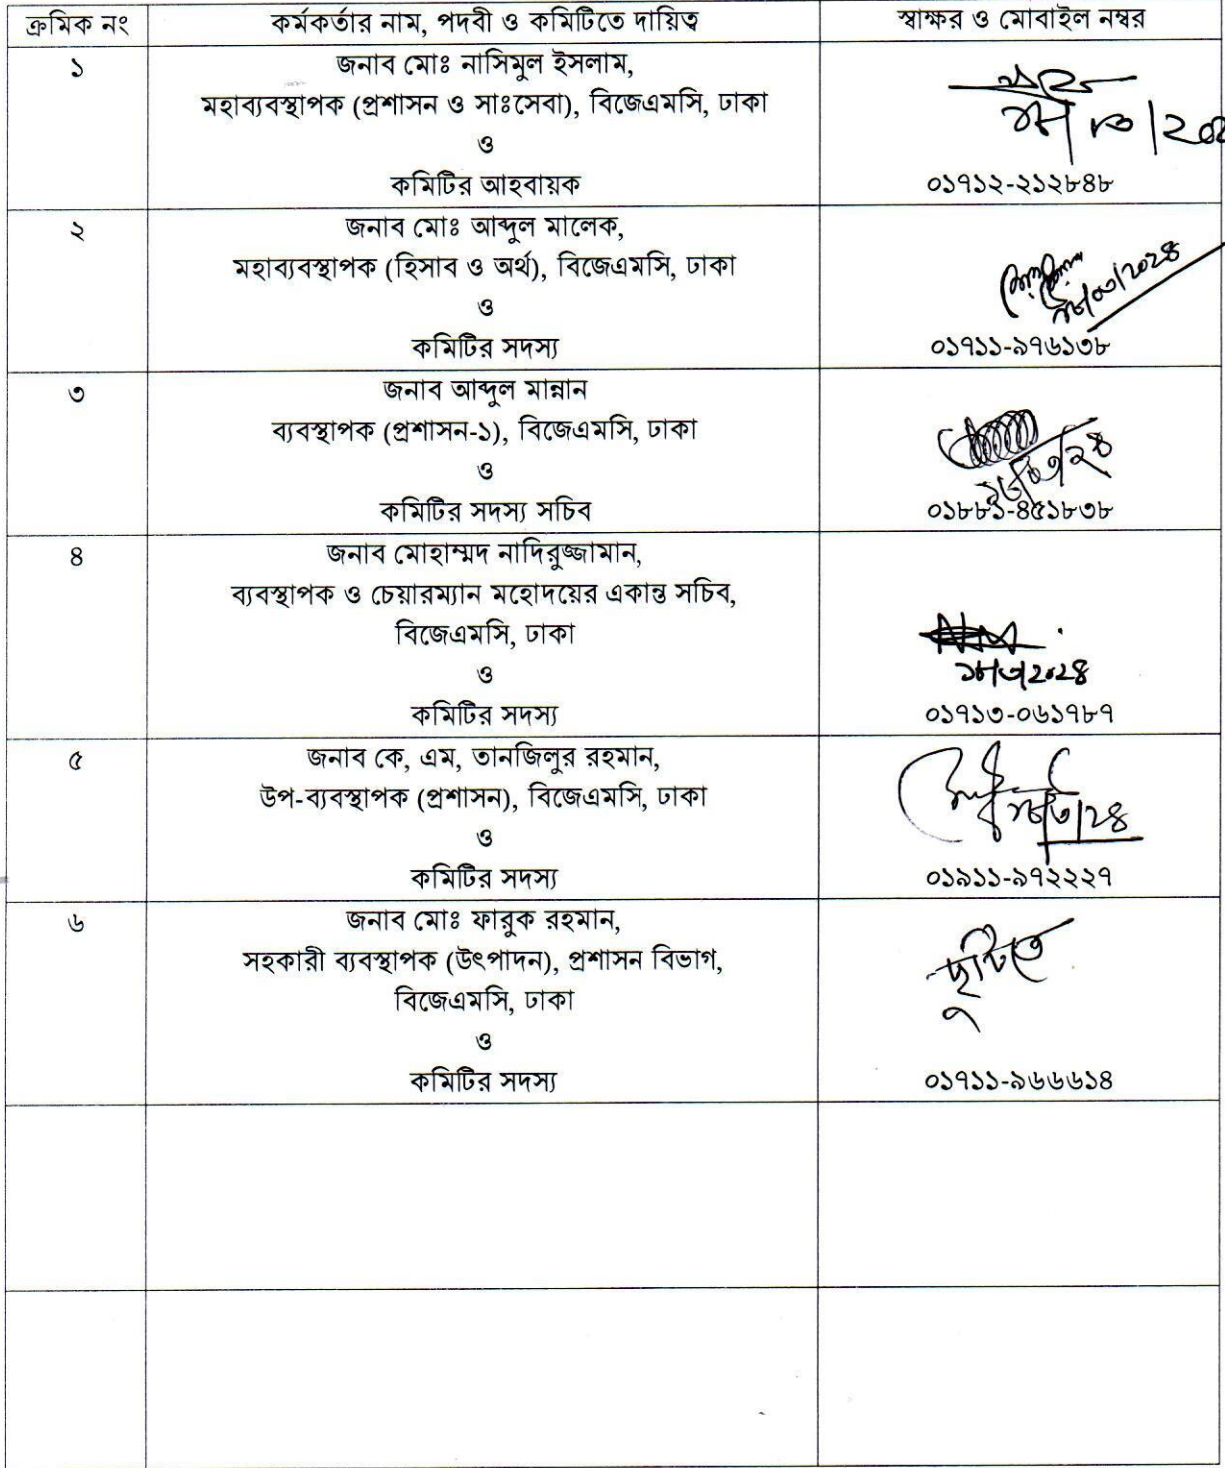 ক্রমিক নং	কর্মকর্তার নাম, পদবী ও কমিটিতে দায়িত্ব	স্বাক্ষর ও মোবাইল নম্বর
১	জনাব মোঃ নাসিমুল ইসলাম,
মহাব্যবস্থাপক (প্রশাসন ও সাঃসেবা), বিজেএমসি, ঢাকা
ও
কমিটির আহবায়ক	০১৭১২-২১২৮৪৮
২	জনাব মোঃ আব্দুল মালেক,
মহাব্যবস্থাপক (হিসাব ও অর্থ), বিজেএমসি, ঢাকা
ও
কমিটির সদস্য	০১৭১১-৯৭৬১৩৮
৩	জনাব আব্দুল মান্নান
ব্যবস্থাপক (প্রশাসন-১), বিজেএমসি, ঢাকা
ও
কমিটির সদস্য সচিব	০১৮৮১-৪৫১৮৩৮
৪	জনাব মোহাম্মদ নাদিরুজ্জামান,
ব্যবস্থাপক ও চেয়ারম্যান মহোদয়ের একান্ত সচিব,
বিজেএমসি, ঢাকা
ও
১৮/৩/২০২৪
কমিটির সদস্য	০১৭১৩-০৬১৭৮৭
৫	জনাব কে, এম, তানজিলুর রহমান,
উপ-ব্যবস্থাপক (প্রশাসন), বিজেএমসি, ঢাকা
ও
কমিটির সদস্য	০১৯১১-৯৭২২২৭
৬	জনাব মোঃ ফারুক রহমান,
সহকারী ব্যবস্থাপক (উৎপাদন), প্রশাসন বিভাগ,
বিজেএমসি, ঢাকা
ছুটিতে
ও
কমিটির সদস্য	০১৭১১-৯৬৬৬১৪